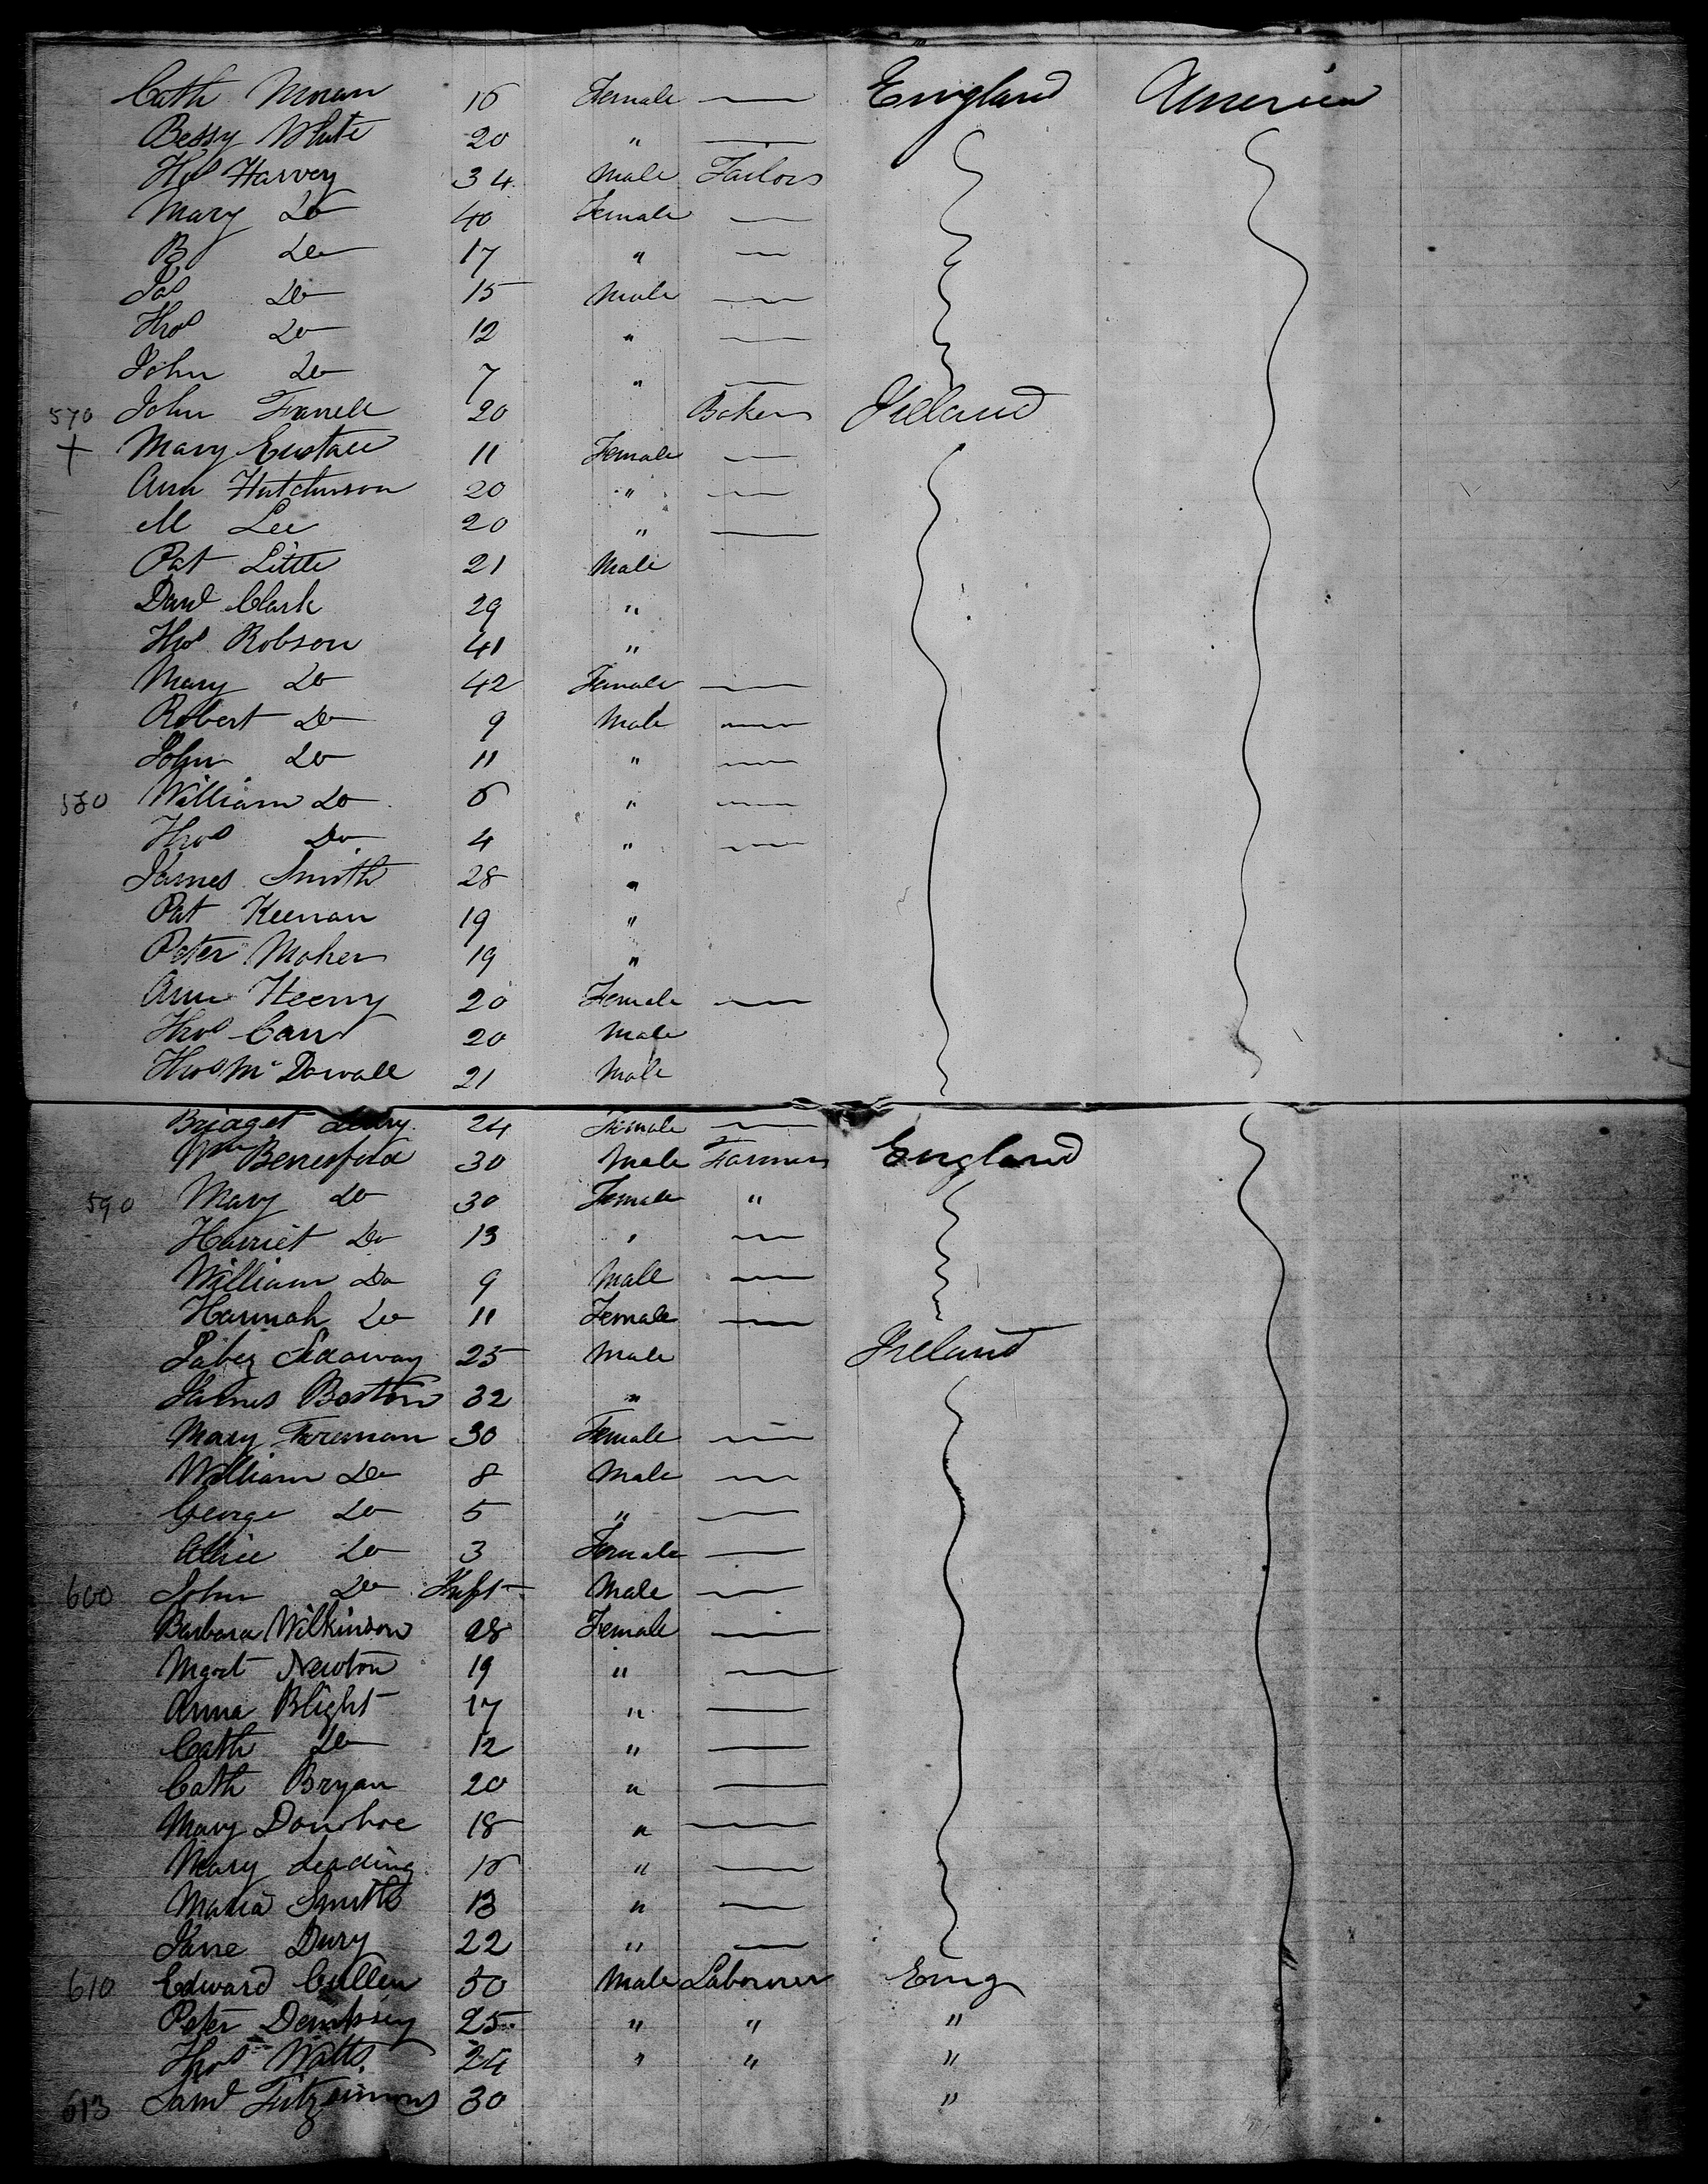 Cath Moran 16 Female — England America
Bessy White 20 " —
Thos Harvey 34 Male Tailors
Mary Do 40 Female —
B Do 17 " —
Jas Do 15 Male —
Thos Do 12 " —
John Do 7 " —
570 John Farrell 20 Baker Ireland
+ Mary Eustace 11 Female —
Ann Hutchinson 20 " —
M Lee 20 " —
Pat Little 21 Male
Danl Clark 29 "
Thos Robson 41 "
Mary Do 42 Female —
Robert Do 9 Male —
John Do 11 " —
580 William Do 6 " —
Thos Do 4 " —
James Smith 28 "
Pat Keenan 19 "
Peter Maher 19 "
Ann Heeny 20 Female —
Thos Carr 20 Male
Thos McDowall 21 Male
Bridget 24 Female —
Wm Berresford 30 Male Farmers England
590 Mary Do 30 Female "
Harriet Do 13 " —
William Do 9 Male —
Hannah Do 11 Female —
Jabez Sidaway 25 Male Ireland
James Boston 32 "
Mary Foreman 30 Female —
William Do 8 Male —
George Do 5 " —
Alice Do 3 Female —
600 John Do Inft Male —
Barbara Wilkinson 28 Female —
Mgrt Newton 19 " —
Anna Blight 17 " —
Cath Do 12 " —
Cath Bryan 20 " —
Mary Donohoe 18 " —
Mary Leading 16 " —
Maria Smith 13 " —
Jane Dury 22 " —
610 Edward Cullen 50 Male Labourer Eng
Peter Dempsey 25 " " "
Thos Watts 24 " " "
613 Saml Fitzsimmons 30 "